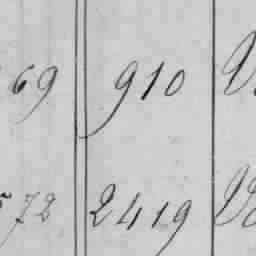 69 910
72 2419